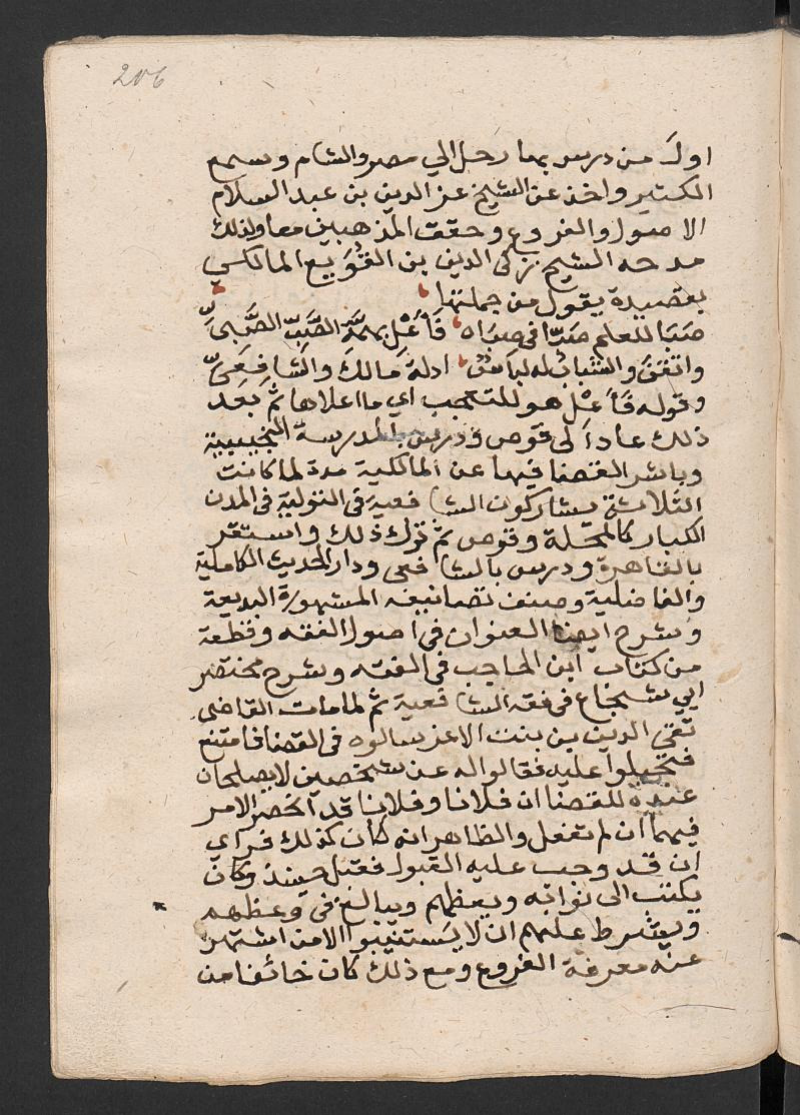 206
اول من درس بها رحل الي مصر والشام وسمع
الكثير واخذ عن الشيخ عز الدين بن عبد السلام
الاصول والفروع وحقق المذهبين معا ولذلك
مدحه الشيخ زكي الدين بن القَوْبَع المالكي
بقصيدة يقول من جملتها
صَبَا للعلم صَبّا في صباه فَأَعْلِ بهمّةِ الصَّبّ الصَّبِىِّ
واتقنَ والشبابُ له لباسٌ ادلةَ مالكَ والشافِعىِّ
وقوله فَأَعْلِ هو للتعجب اي ما اعلاها ثم بعد
ذلك عاد الى قوص ودرس بالمدرسة النجيبية
وباشر القضا فيها عن المالكية مدة لما كانت
الثلاثة يشاركون الشافعية في التولية في المدن
الكبار كالمحلة وقوص ثم ترك ذلك واستقر
بالقاهرة ودرس بالشافعى ودار الحديث الكاملية
والفاضلية وصنف تصانيفه المشهورة البديعة
وشرح ايضا العنوان في اصول الفقه وقطعة
من كتاب ابن الحاجب في الفقه وشرح مختصر
ابي شجاع في فقه الشافعية ثم لما مات القاضى
تقى الدين بن بنت الاعز سالوه في القضا فامتنع
فتحيلوا عليه فقالوا له عن شخصين لا يصلحان
عنده للقضا ان فلانا وفلانا قد انحصر الامر
فيهما ان لم تفعل والظاهر انه كان كذلك فراي
ان قد وجب عليه القبول فقبل حينيذ وكان
يكتب الى نوابه ويعظهم ويبالغ في وعظهم
ويشرط عليهم ان لا يستنيبوا الا من اشتهر
عنه معرفة الفروع ومع ذلك كان خائفا من